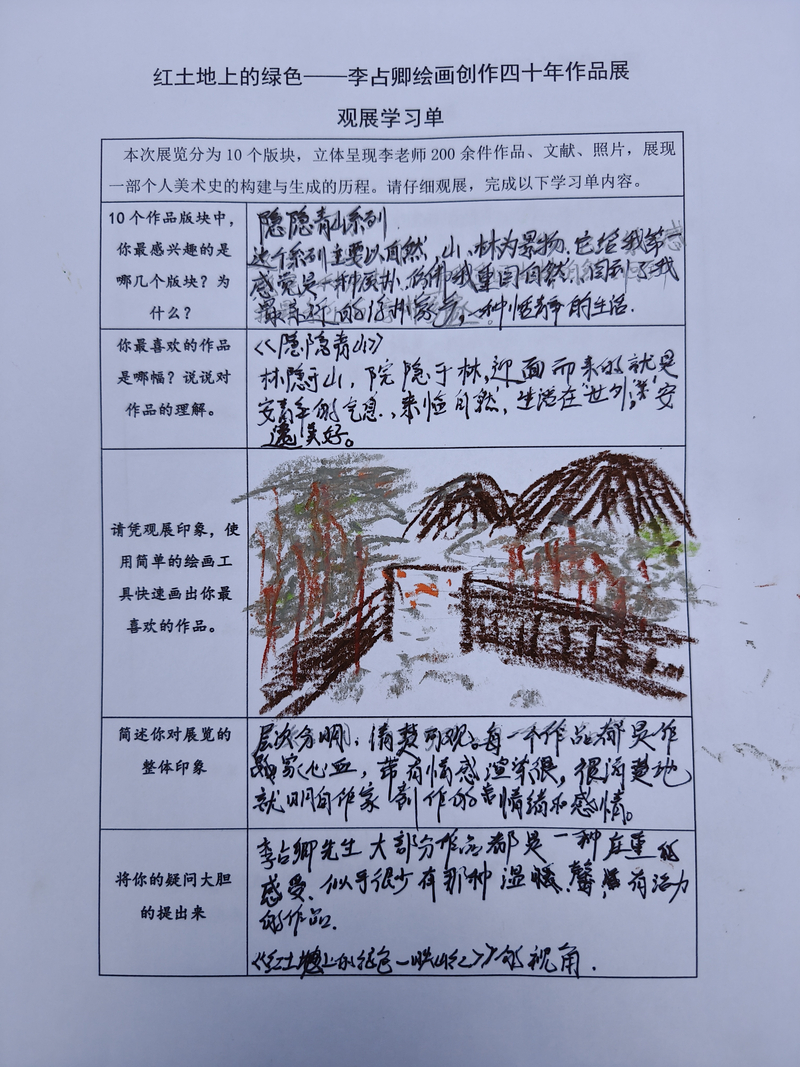 红土地上的绿色——李占卿绘画创作四十年作品展
观展学习单
本次展览分为10个版块，立体呈现李老师200余件作品、文献、照片，展现
一部个人美术史的构建与生成的历程。请仔细观展，完成以下学习单内容。
10个作品版块中，
你最感兴趣的是
哪几个版块？为
什么？
隐隐青山系列
这个系列主要以自然，山、林为景物.它给我第
感觉是一种质朴.仿佛我重回自然.回到了我
的 家乡，一种恬静的生活.
你最喜欢的作品
是哪幅？说说对
作品的理解。
《隐隐青山》
林隐于山，院隐于林,迎面而来的就是
的气息，来临自然，生活在“世外”,安
逸美好。
请凭观展印象，使
用简单的绘画工
具快速画出你最
喜欢的作品。
简述你对展览的
整体印象
层次分明、清楚可观。每一个作品都是作
家心血，带有情感渲染很，很清楚地
就明白作家创作的情绪和感情。
将你的疑问大胆
的提出来
李占卿先生大部分作品都是一种庄重的
感受、似乎很少有那种温暖.馨,有活力
的作品.
《红土地上的绿色一映山红》的视角.